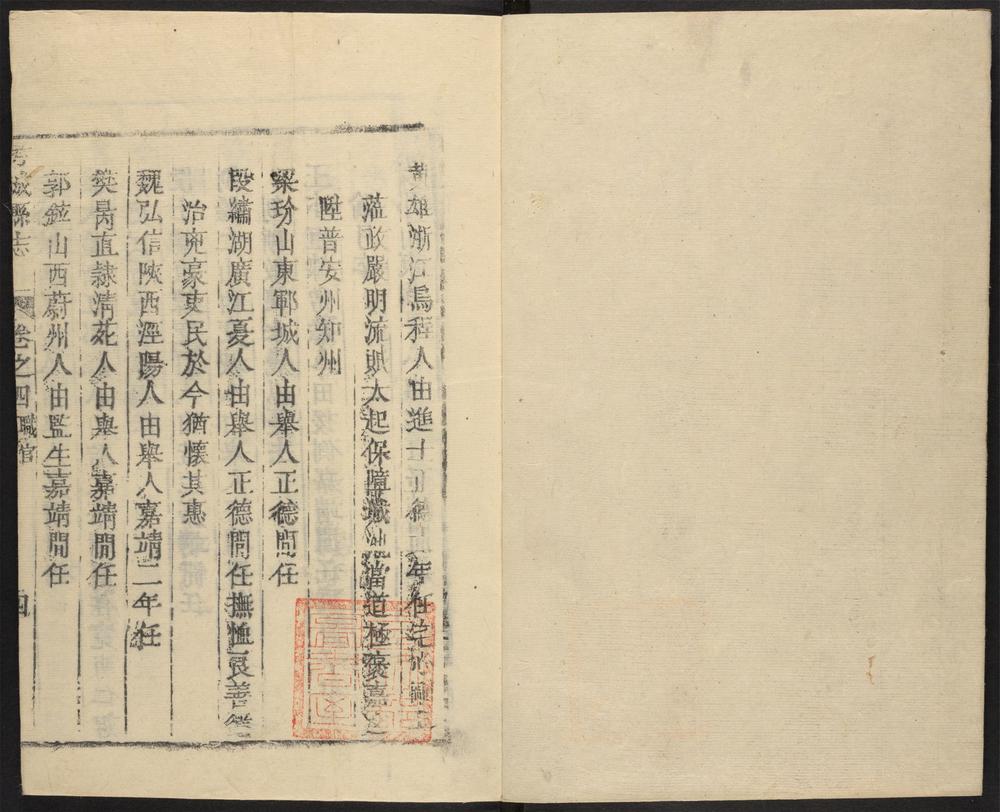 黃雄浙江烏程人由進士正德 年任
蒞政嚴明流賊大起保障 當道極褒嘉之
陞普安州知州
梁玢山東鄆城人由舉人正德間任
段繡湖廣江夏人由舉人正德間任撫恤良善
治兇豪吏民於今猶懷其惠
魏弘信陝西涇陽人由舉人嘉靖二年任
樊景直隸清苑人由舉人嘉靖間任
郭鉉山西蔚州人由監生嘉靖間任
城縣志 卷之四職官 四